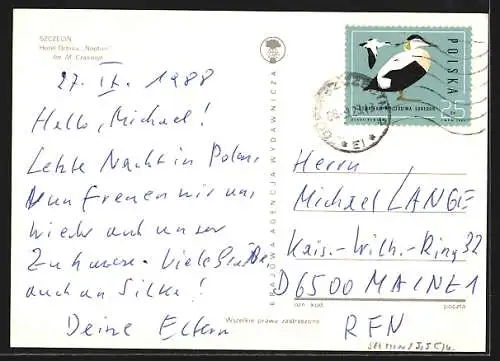 SZCZECIN
Hotel Orbis „Neptun"
fot. M. Czasnojć
27. IX. 1988
Hello, Michael!
Letzte Nacht in Polen,
Nun freuen wir uns
wieder auf unser
Zuhause. Viele Grüße
auch an Silke!
Deine Eltern
KRAJOWA AGENCJA WYDAWNICZA
Wszelkie prawa zastrzeżone
POLSKA
25
Herrn
Michael LANGE
Kais.-Wilh.-Ring 32
D6500 MAINZ 1
poczta
RFN